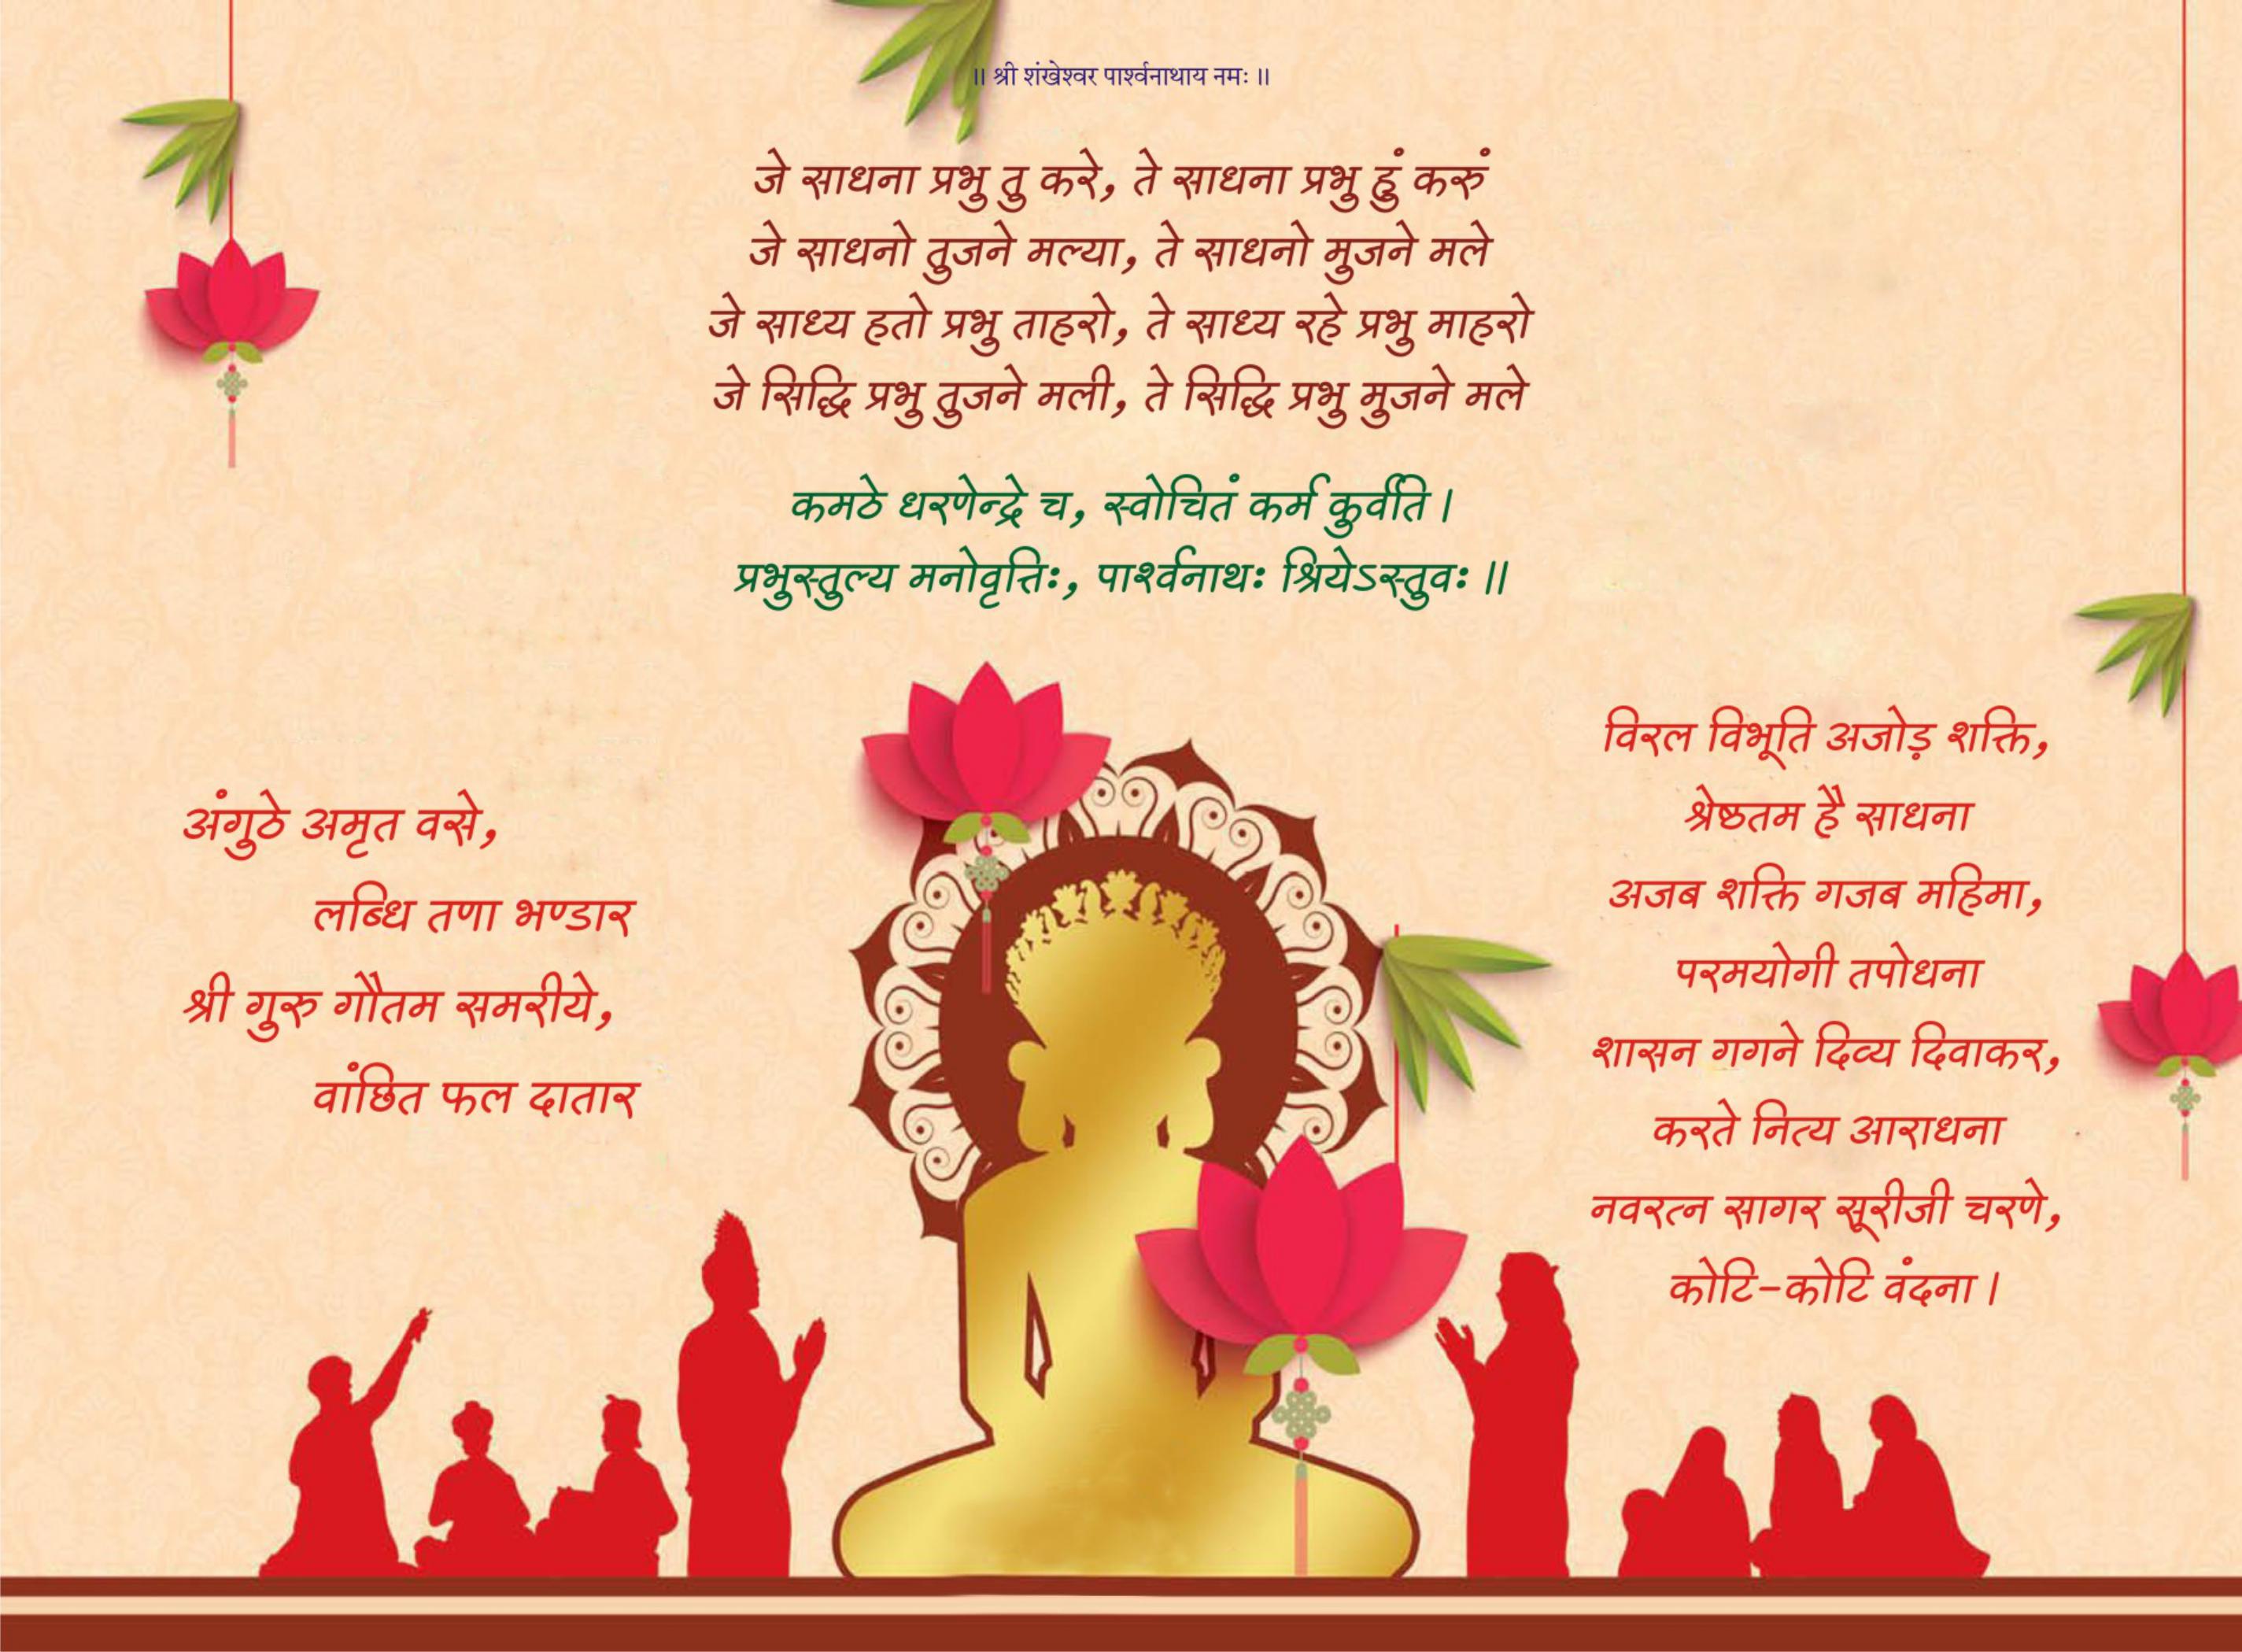 ॥ श्री शंखेश्वर पार्श्वनाथाय नमः ॥
जे साधना प्रभु तु करे, ते साधना प्रभु हुं करुं
जे साधनो तुजने मल्या, ते साधनो मुजने मले
जे साध्य हतो प्रभु ताहरो, ते साध्य रहे प्रभु माहरो
जे सिद्धि प्रभु तुजने मली, ते सिद्धि प्रभु मुजने मले
कमठे धरणेन्द्रे च, स्वोचितं कर्म कुर्वति ।
प्रभुस्तुल्य मनोवृत्तिः, पार्श्वनाथः श्रियेऽस्तुवः ॥
अंगुठे अमृत वसे,
लब्धि तणा भण्डार
श्री गुरु गौतम समरीये,
वांछित फल दातार
विरल विभूति अजोड़ शक्ति,
श्रेष्ठतम है साधना
अजब शक्ति गजब महिमा,
परमयोगी तपोधना
शासन गगने दिव्य दिवाकर,
करते नित्य आराधना
नवरत्न सागर सूरीजी चरणे,
कोटि-कोटि वंदना ।